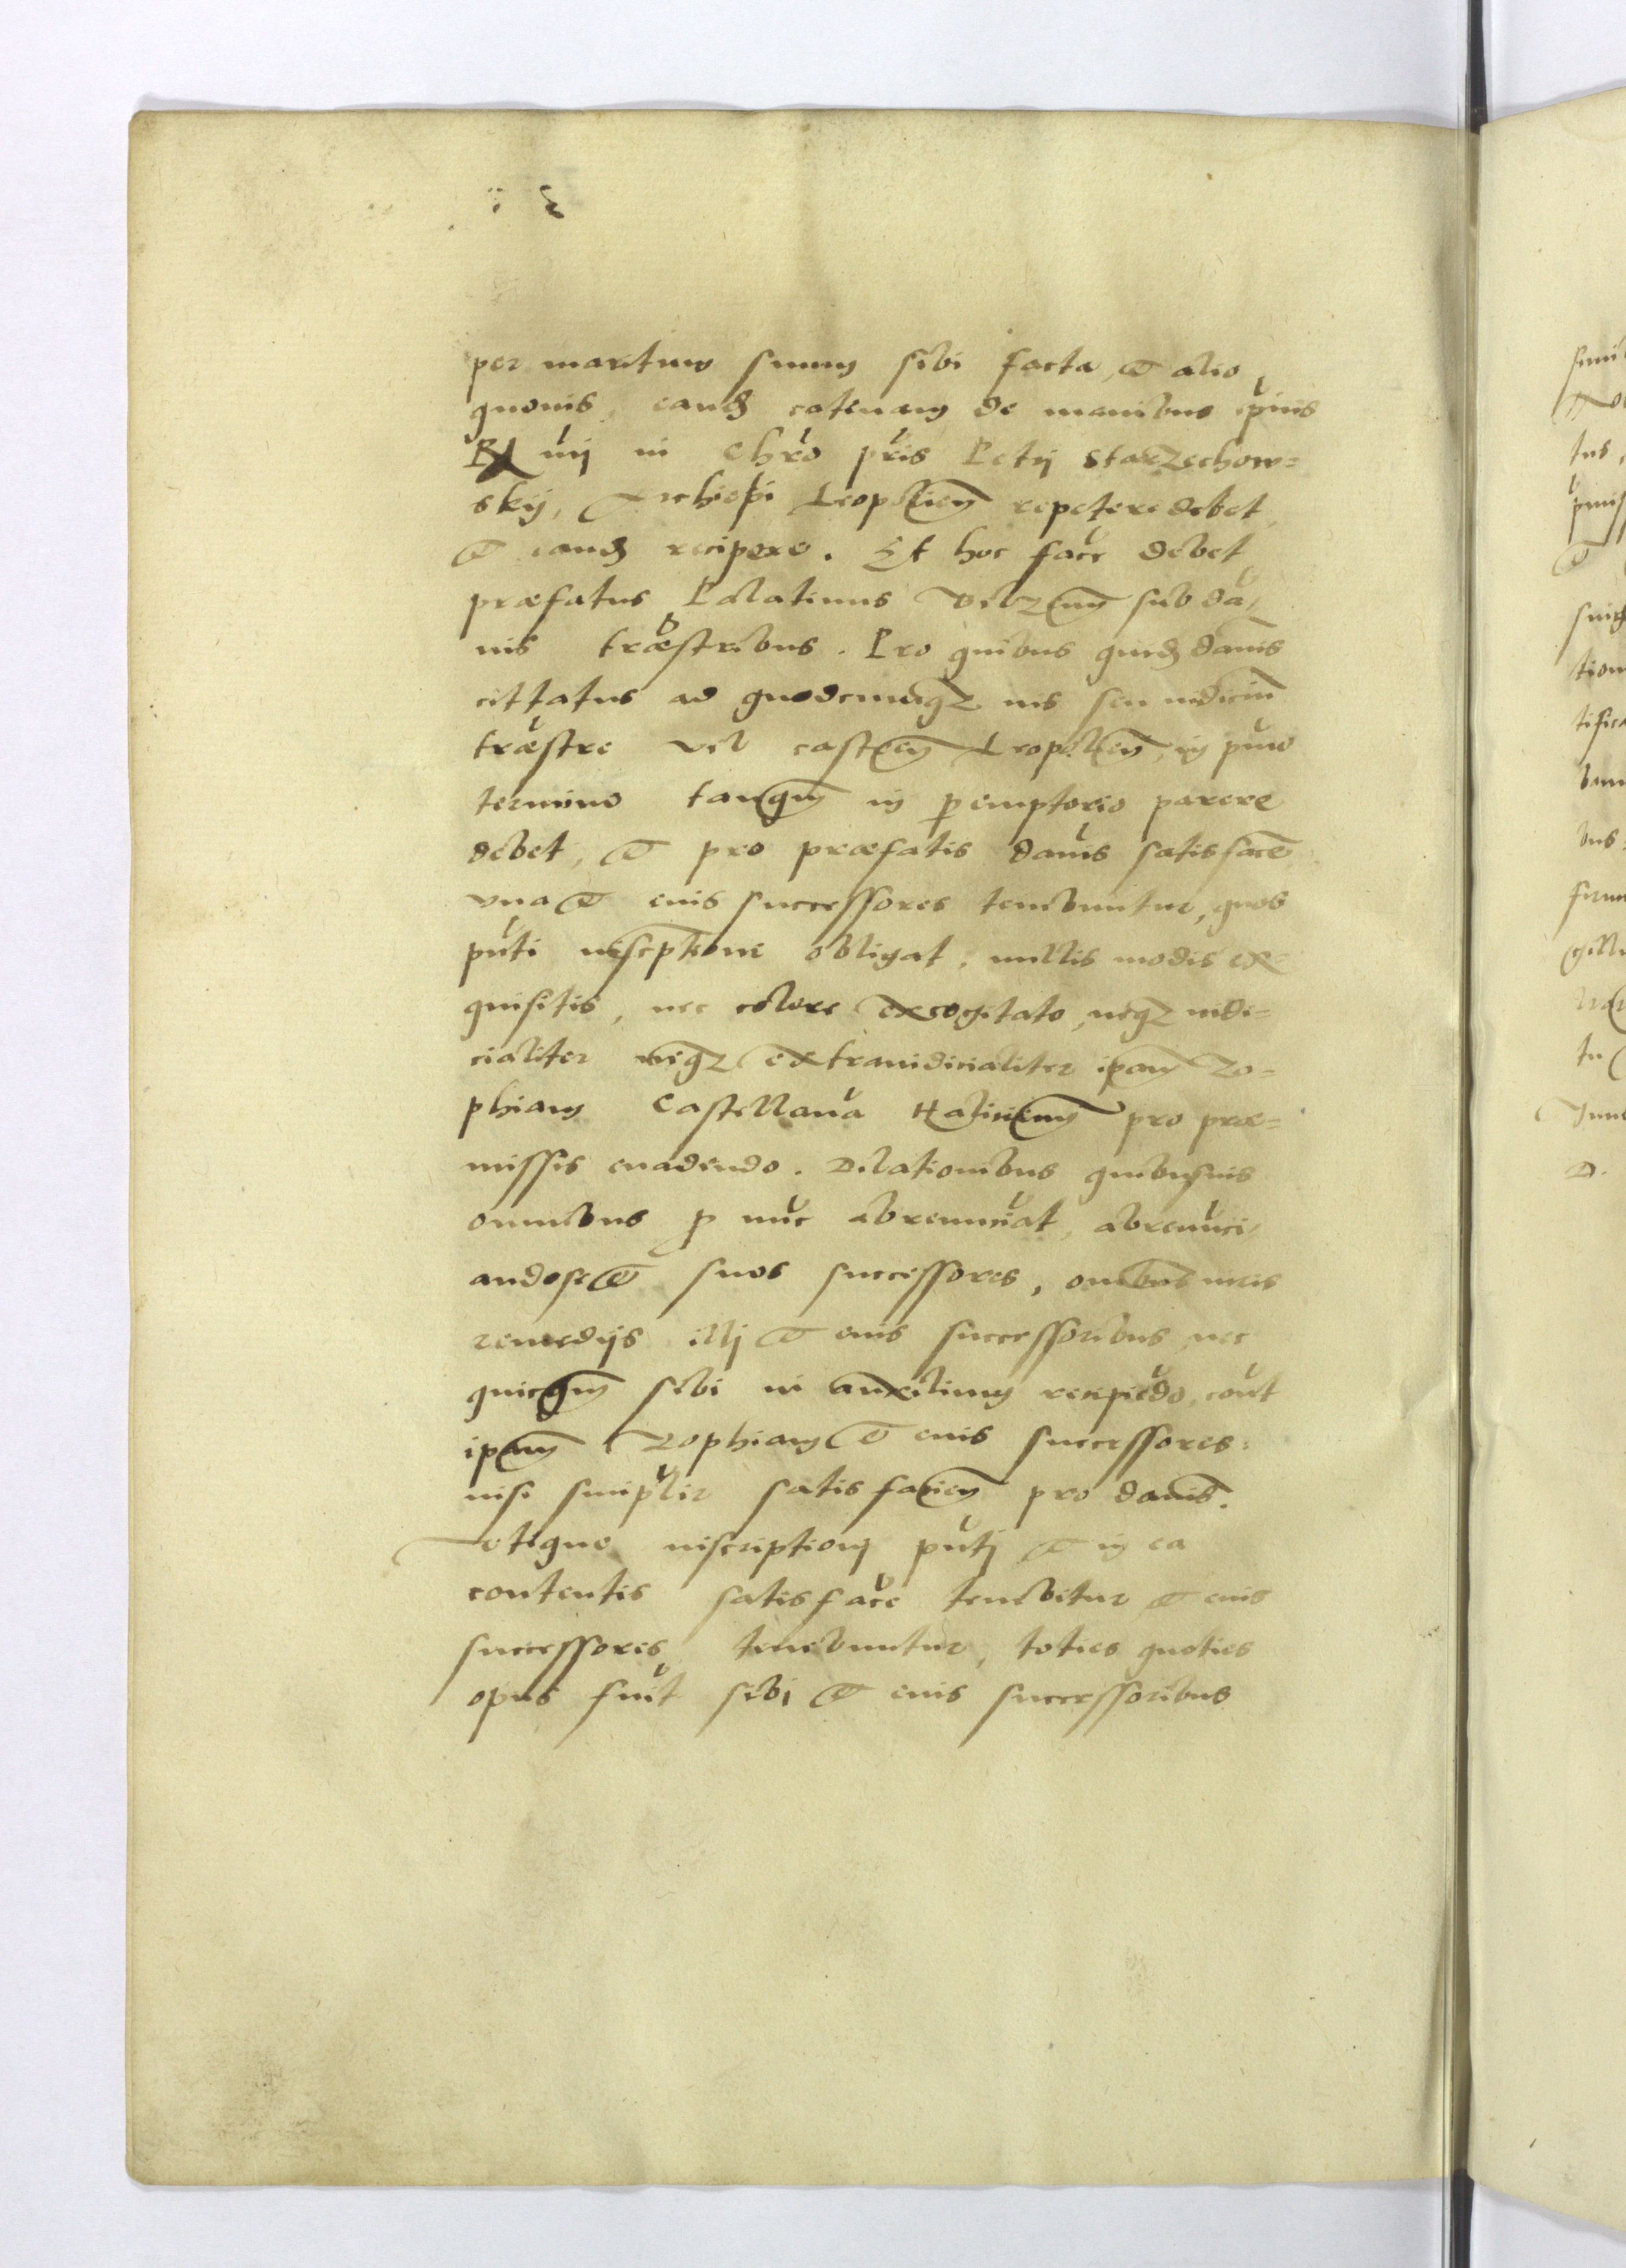 per maritum suum sibi facta, et alio
quovis, eandem catenam de manibus ipsius
Rmi in Chro pris Petri Starzechow=
skij, Archiepi Leopolien repetere debet,
et eandem recipere. Et hoc facere debet
præfatus Palatinus Belzen sub da,
nis trrestribus. Pro quibus quidem danis
cittatus ad quodcunqz ius seu iudicium
trrestre vel castren Leopolien, in primo
termino tanqm in peremptorio parere
debet, et pro præfatis danis satisfacere
vna et eius successores tenebuntur, quos
pnti inscriptione obligat, nullis modis ex=
quisitis, nec colore excogitato, neqz iudi=
cialiter neqz extraiudicialiter ipam Zo=
phiam Castellana Halicien pro præ=
missis euadendo. Dilationibus quibusuis
omnibus p nuc abrenunciat, abrenuci,
ando se et suos successores, omnibus iuris
remedijs illi et eius successoribus, nec
quicqm sibi in auxilium recipiedo, cont
ipam Zophiam et eius successores:
nisi simplir satisfacien pro danis.
Atque inscriptioni pnti et in ea
contentis satisfacere tenebitur et eius
successores tenebuntur, toties quoties
opus fuit sibi et eius successoribus